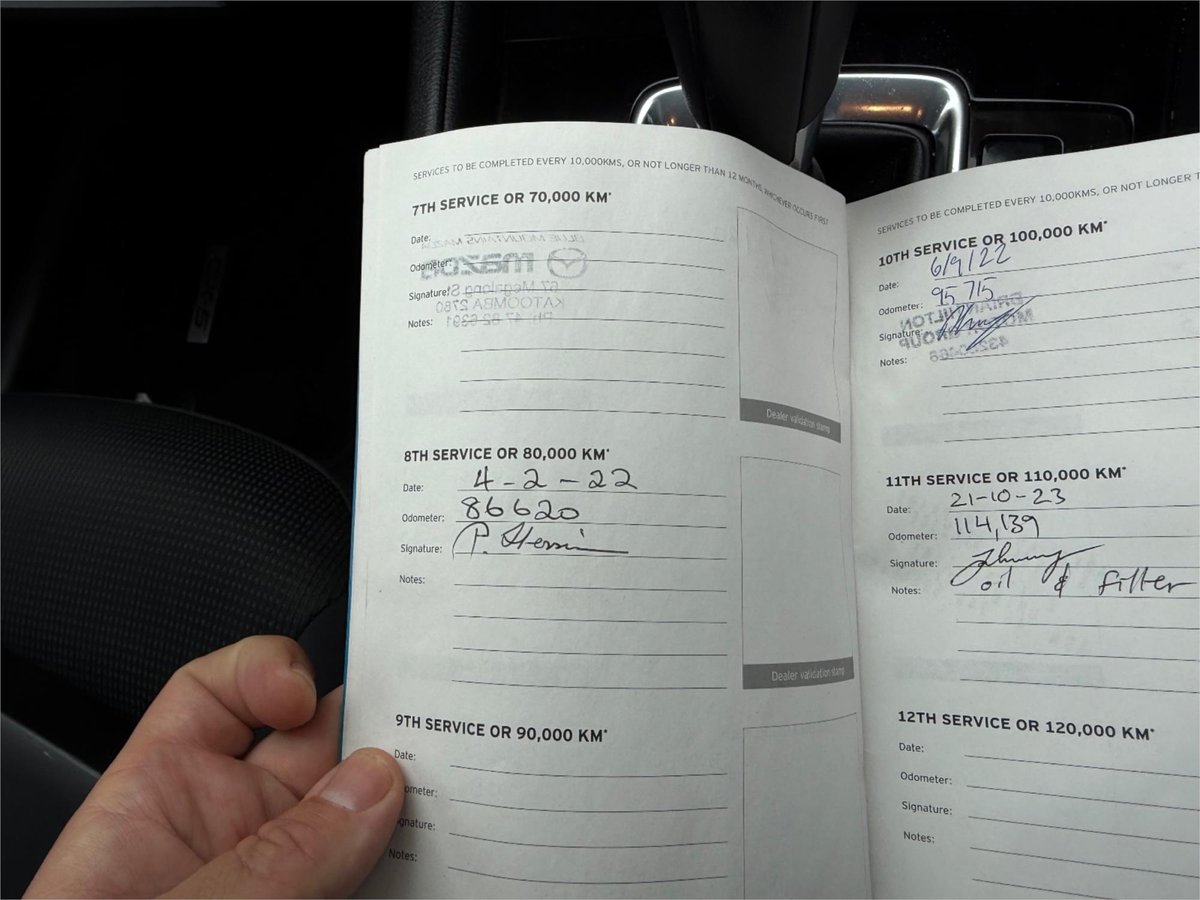 SERVICES TO BE COMPLETED EVERY 10,000KMS, OR NOT LONGER THAN 12 MONTHS, WHICHEVER OCCURS FIRST
7TH SERVICE OR 70,000 KM*
Date:
Odometer:
Signature:
Notes:
BLUE MOUNTAINS MAZDA
mazda
67 Megalong St
KATOOMBA 2780
Ph: 47 82 6391
Dealer validation stamp
8TH SERVICE OR 80,000 KM*
Date: 4-2-22
Odometer: 86620
Signature: P.
Notes:
Dealer validation stamp
9TH SERVICE OR 90,000 KM*
Date:
ometer:
gnature:
Notes:
SERVICES TO BE COMPLETED EVERY 10,000KMS, OR NOT LONGER T
10TH SERVICE OR 100,000 KM*
Date: 6/9/22
Odometer: 95 715
Signature:
Notes:
11TH SERVICE OR 110,000 KM*
Date: 21-10-23
Odometer: 114,139
Signature:
Notes: oil & filter
12TH SERVICE OR 120,000 KM*
Date:
Odometer:
Signature:
Notes: